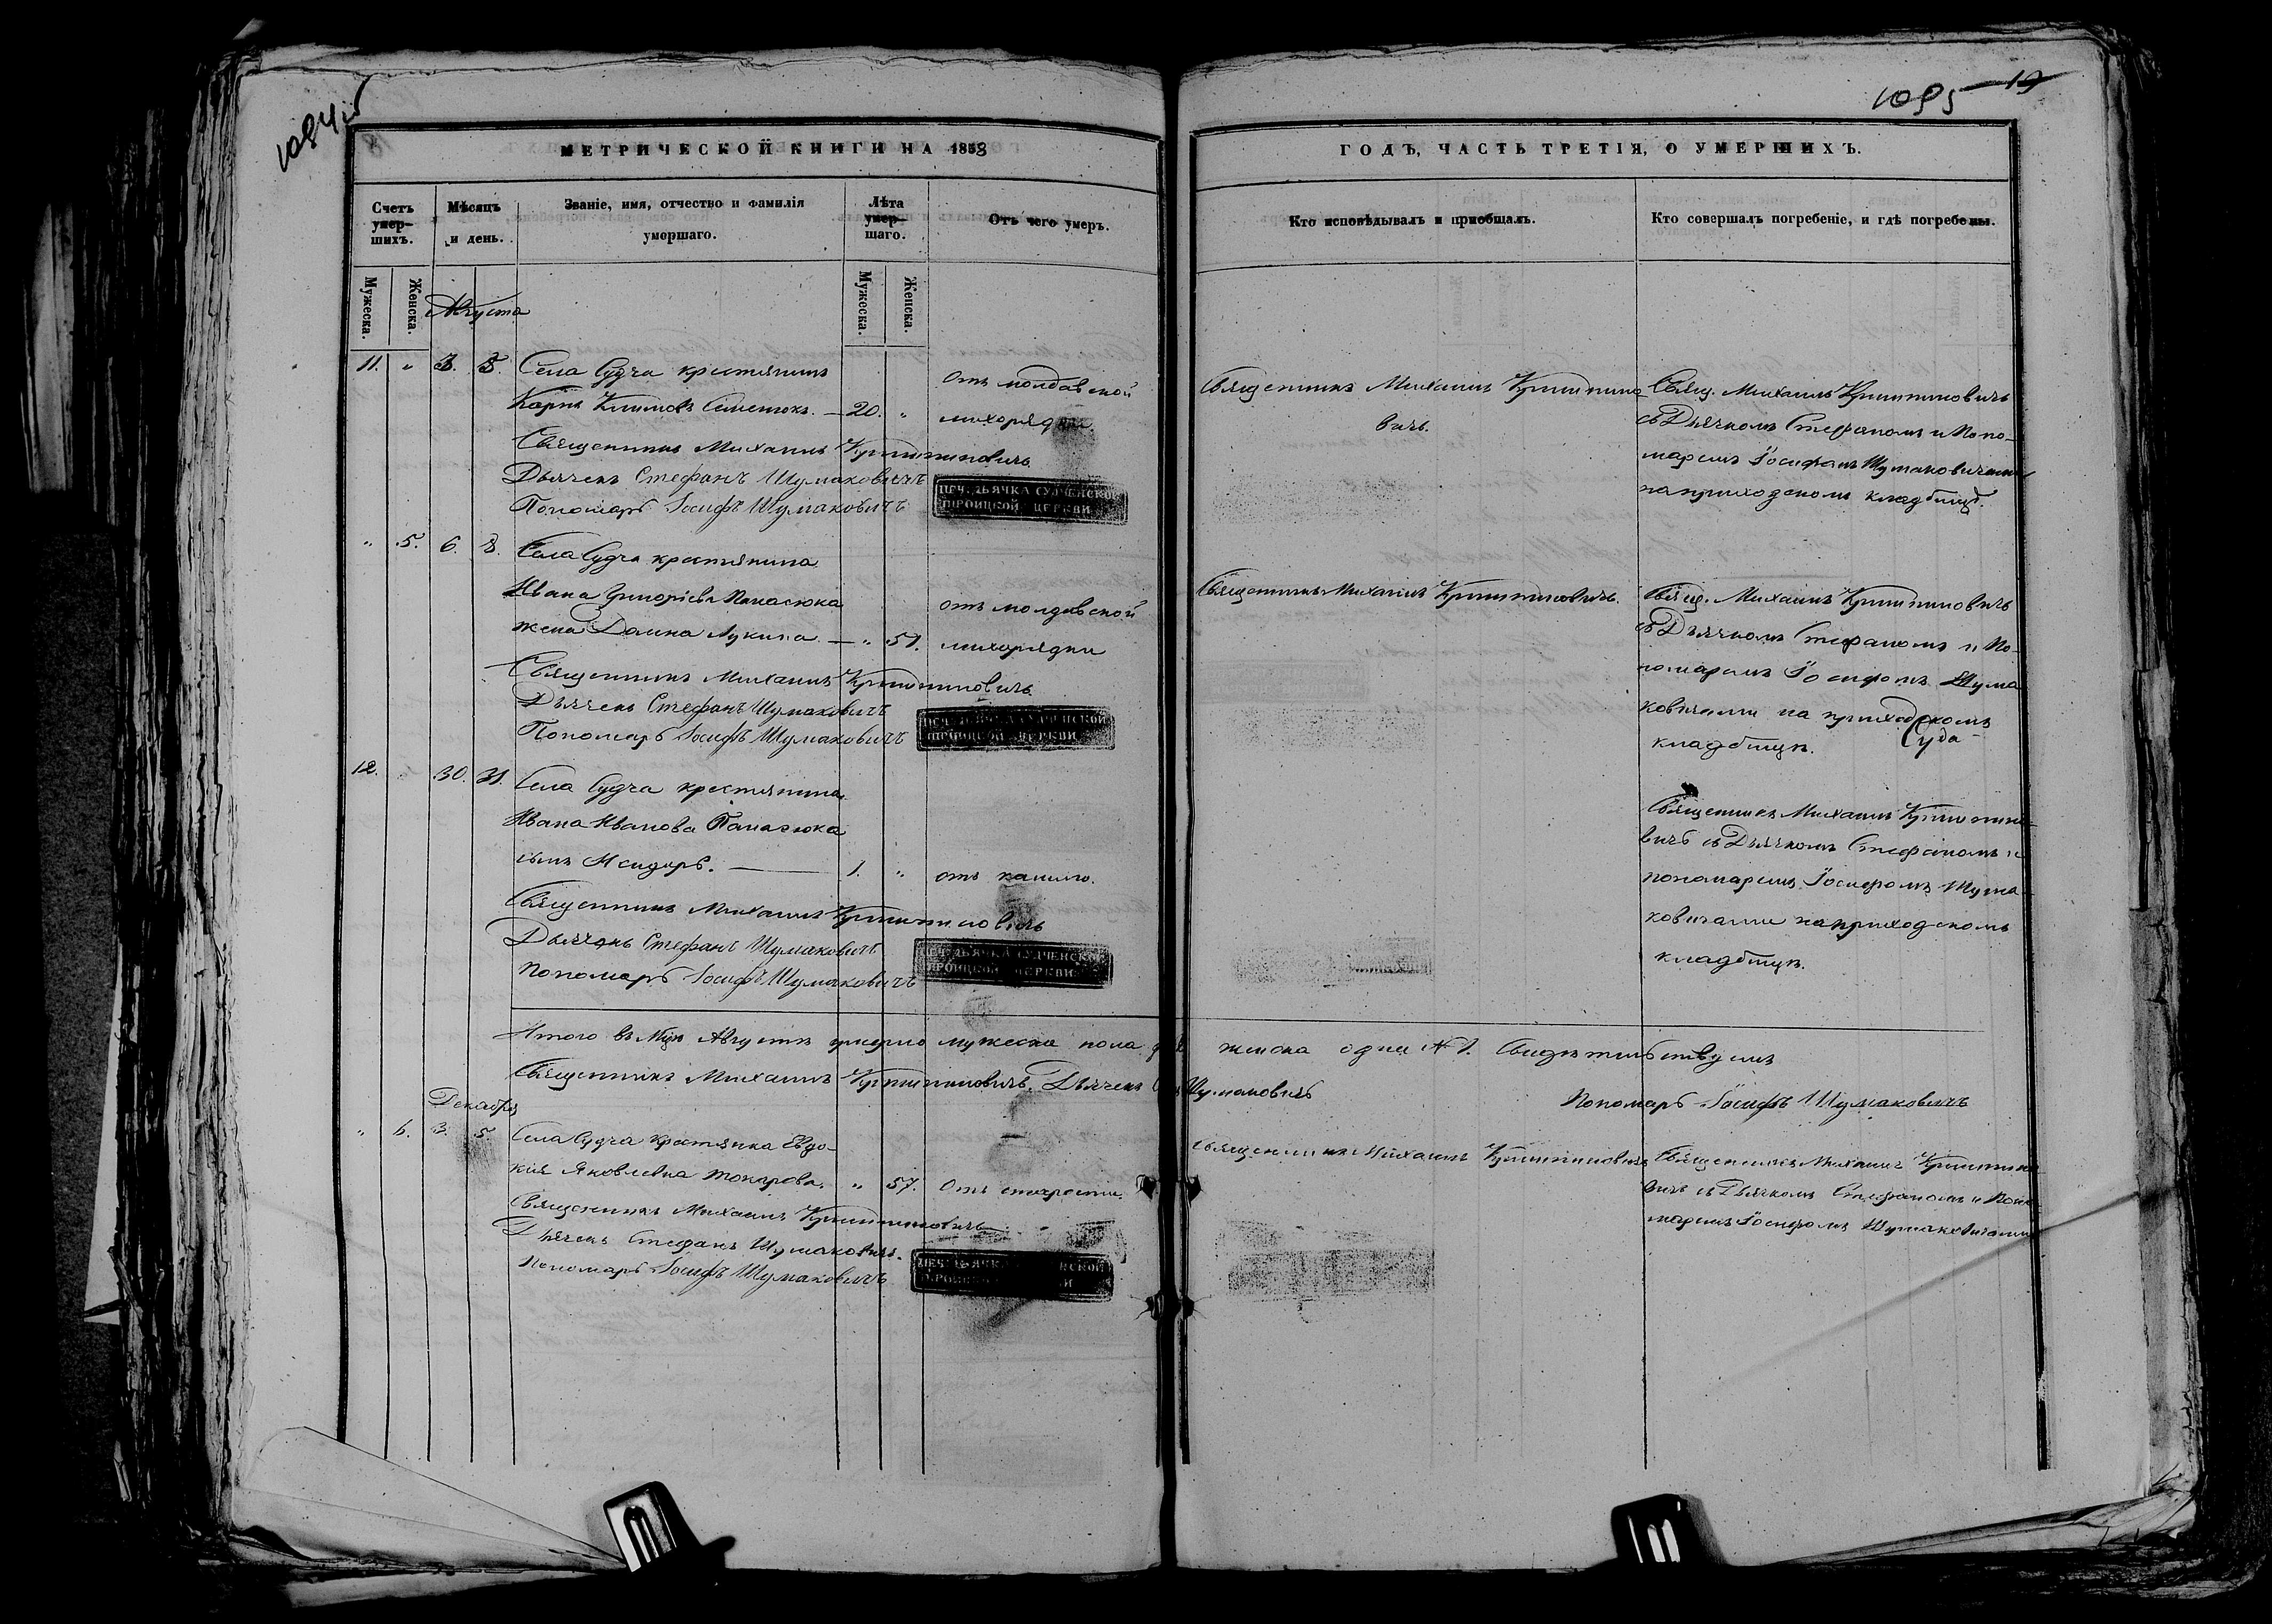 1084
1095 19
МЕТРИЧЕСКОЙ КНИГИ НА 1853
ГОДЪ, ЧАСТЬ ТРЕТІЯ, О УМЕРШИХЪ.
Счетъ умер-шихъ.
Мѣсяцъ и день.
Званіе, имя, отчество и фамилія умершаго.
Лѣта умер-шаго.
Отъ чего умеръ.
Кто исповѣдывалъ и пріобщалъ.
Кто совершалъ погребеніе, и гдѣ погребены.
Мужеска.
Женска.
Мужеска.
Женска.
Августа
11. " 3. 5. Села Судча крестянинъ
Карпъ Климовъ — 20. "
отъ молдавской
лихорядки.
Священникъ Михаилъ
вичъ.
Свящ. Михаилъ
съ Дьячкомъ Стефаномъ и Поно-
маремъ Іосифомъ Шумаковичами
на приходскомъ кладбищѣ.
Священникъ Михаилъ
Дьячекъ Стефанъ Шумаковичъ
Пономарь Іосифъ Шумаковичъ
ПЕЧ. ДЬЯЧКА СУДЧЕНСКОЙ
ТРОИЦКОЙ ЦЕРКВИ
" 5. 6. 8. Села Судча крестянина
Ивана Григоріева Панасюка
жена Домна Лукина — " 51.
отъ молдавской
лихорядки
Священникъ Михаилъ
Свящ. Михаилъ
съ Дьячкомъ Стефаномъ и По-
номаремъ Іосифомъ Шума
ковичами на приходскомъ
кладбищѣ. Суда
Священникъ Михаилъ
Дьячекъ Стефанъ Шумаковичъ
Пономарь Іосифъ Шумаковичъ
СУДЧЕНСКОЙ
ТРОИЦКОЙ ЦЕРКВИ
12. " 30. 31. Села Судча крестянина
Ивана Иванова Панасюка
сынъ Исидоръ. — 1. " отъ кашлю.
Священникъ Михаилъ
вичъ съ Дьячкомъ Стефаномъ и
пономаремъ Іосифомъ Шума
ковичами на приходскомъ
кладбищѣ.
Священникъ Михаилъ
Дьячекъ Стефанъ Шумаковичъ
Пономарь Іосифъ Шумаковичъ
ПЕЧ. ДЬЯЧКА СУДЧЕНСКОЙ
ТРОИЦКОЙ ЦЕРКВИ
Итого въ Августѣ умерло мужеска пола женска одна № 1. Свидѣтельствуемъ
Священникъ Михаилъ Дьячекъ Шумаковичъ
Пономарь Іосифъ Шумаковичъ
Декабря
" 6. 3. 5. Села Судча крестянка Евдо-
кія Яковлевна Токарова. " 57. Отъ старости.
Священникъ Михаилъ
Священникъ Михаилъ
вичъ съ Дьячкомъ Стефаномъ и Поно
маремъ Іосифомъ Шумаковичами
Священникъ Михаилъ
Дьячекъ Стефанъ Шумаковичъ.
Пономарь Іосифъ Шумаковичъ